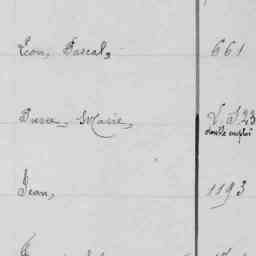 Léon, Pascal, 661
Pierre-Marie, V. 523
double emploi
Jean, 1193